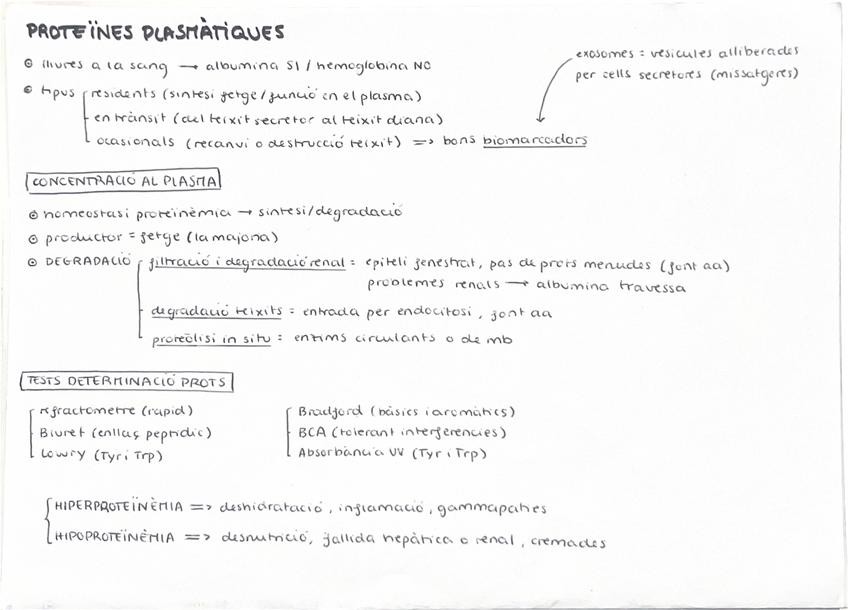 PROTEÏNES PLASMÀTIQUES
lliures a la sang → albumina SI / hemoglobina NO
exosomes = vesícules alliberades
per cells secretores (missatgeres)
tipus residents (síntesi fetge/funció en el plasma)
en trànsit (del teixit secretor al teixit diana)
ocasionals (recanvi o destrucció teixit) => bons biomarcadors
CONCENTRACIÓ AL PLASMA
homeostasi proteïnèmia → síntesi/degradació
productor = fetge (la majoria)
DEGRADACIÓ filtració i degradació renal = epiteli fenestrat, pas de prots menudes (font aa)
problemes renals → albumina travessa
degradació teixits = entrada per endocitosi, font aa
proteòlisi in situ = enzims circulants o de mb
TESTS DETERMINACIÓ PROTS
refractòmetre (ràpid)
Biuret (enllaç peptídic)
Lowry (Tyr i Trp)
Bradford (bàsics i aromàtics)
BCA (tolerant interferències)
Absorbància UV (Tyr i Trp)
HIPERPROTEÏNÈMIA => deshidratació, inflamació, gammapaties
HIPOPROTEÏNÈMIA => desnutrició, fallida hepàtica o renal, cremades